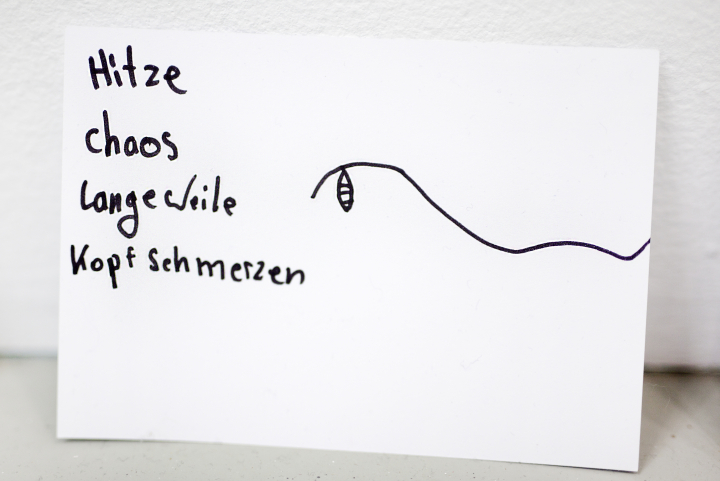 Hitze
chaos
Langeweile
Kopfschmerzen